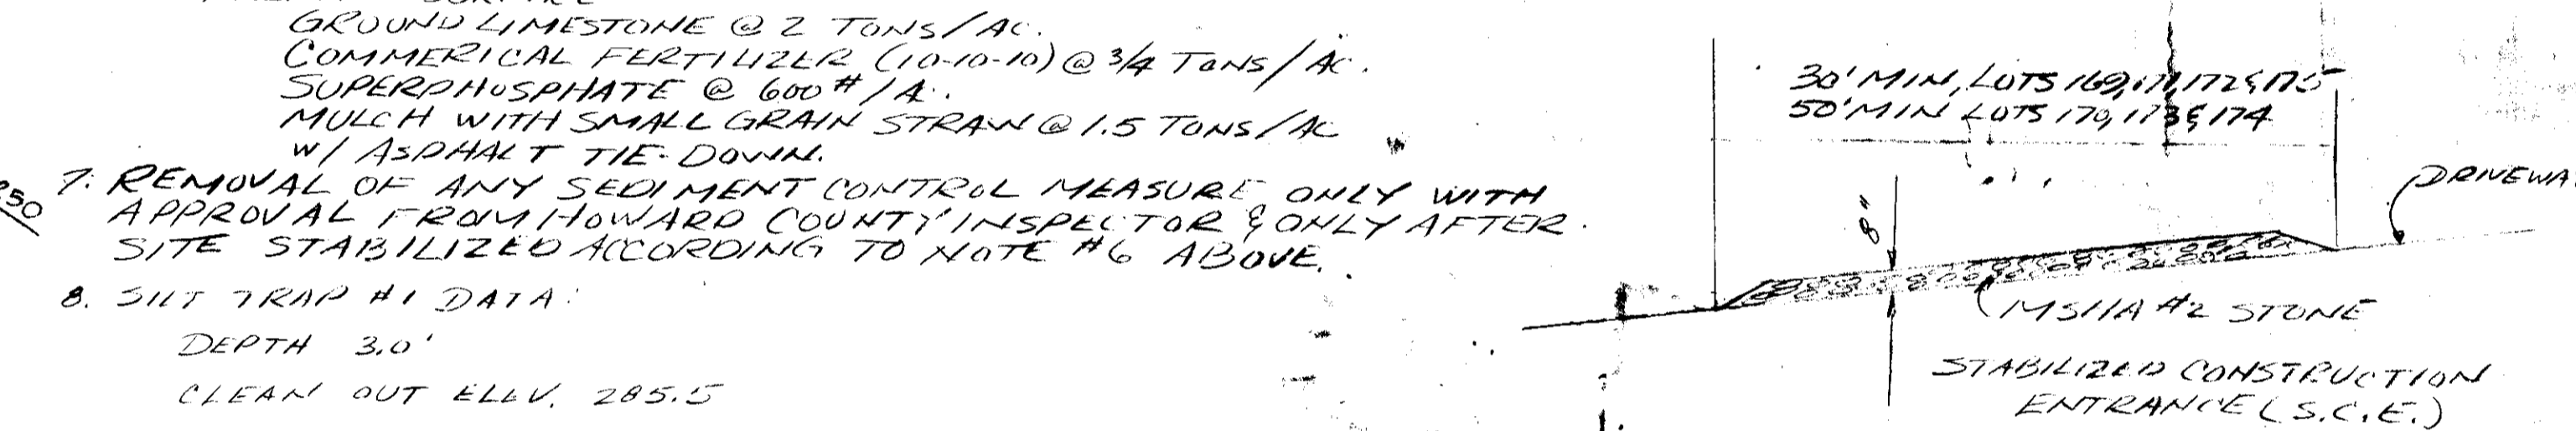 GROUND LIMESTONE @ 2 TONS/AC.
COMMERICAL FERTILIZER (10-10-10) @ 3/4 TONS/AC.
SUPERPHOSPHATE @ 600#/A.
MULCH WITH SMALL GRAIN STRAW @ 1.5 TONS/AC
W/ ASPHALT TIE-DOWN.
7. REMOVAL OF ANY SEDIMENT CONTROL MEASURE ONLY WITH
APPROVAL FROM HOWARD COUNTY INSPECTOR & ONLY AFTER
SITE STABILIZED ACCORDING TO NOTE #6 ABOVE.
8. SILT TRAP #1 DATA:
DEPTH 3.0'
CLEAN OUT ELEV. 285.5
250
30' MIN, LOTS 169, 171, 172 & 175
50' MIN LOTS 170, 173 & 174
8"
DRIVEWA
MSHA #2 STONE
STABILIZED CONSTRUCTION
ENTRANCE (S.C.E.)